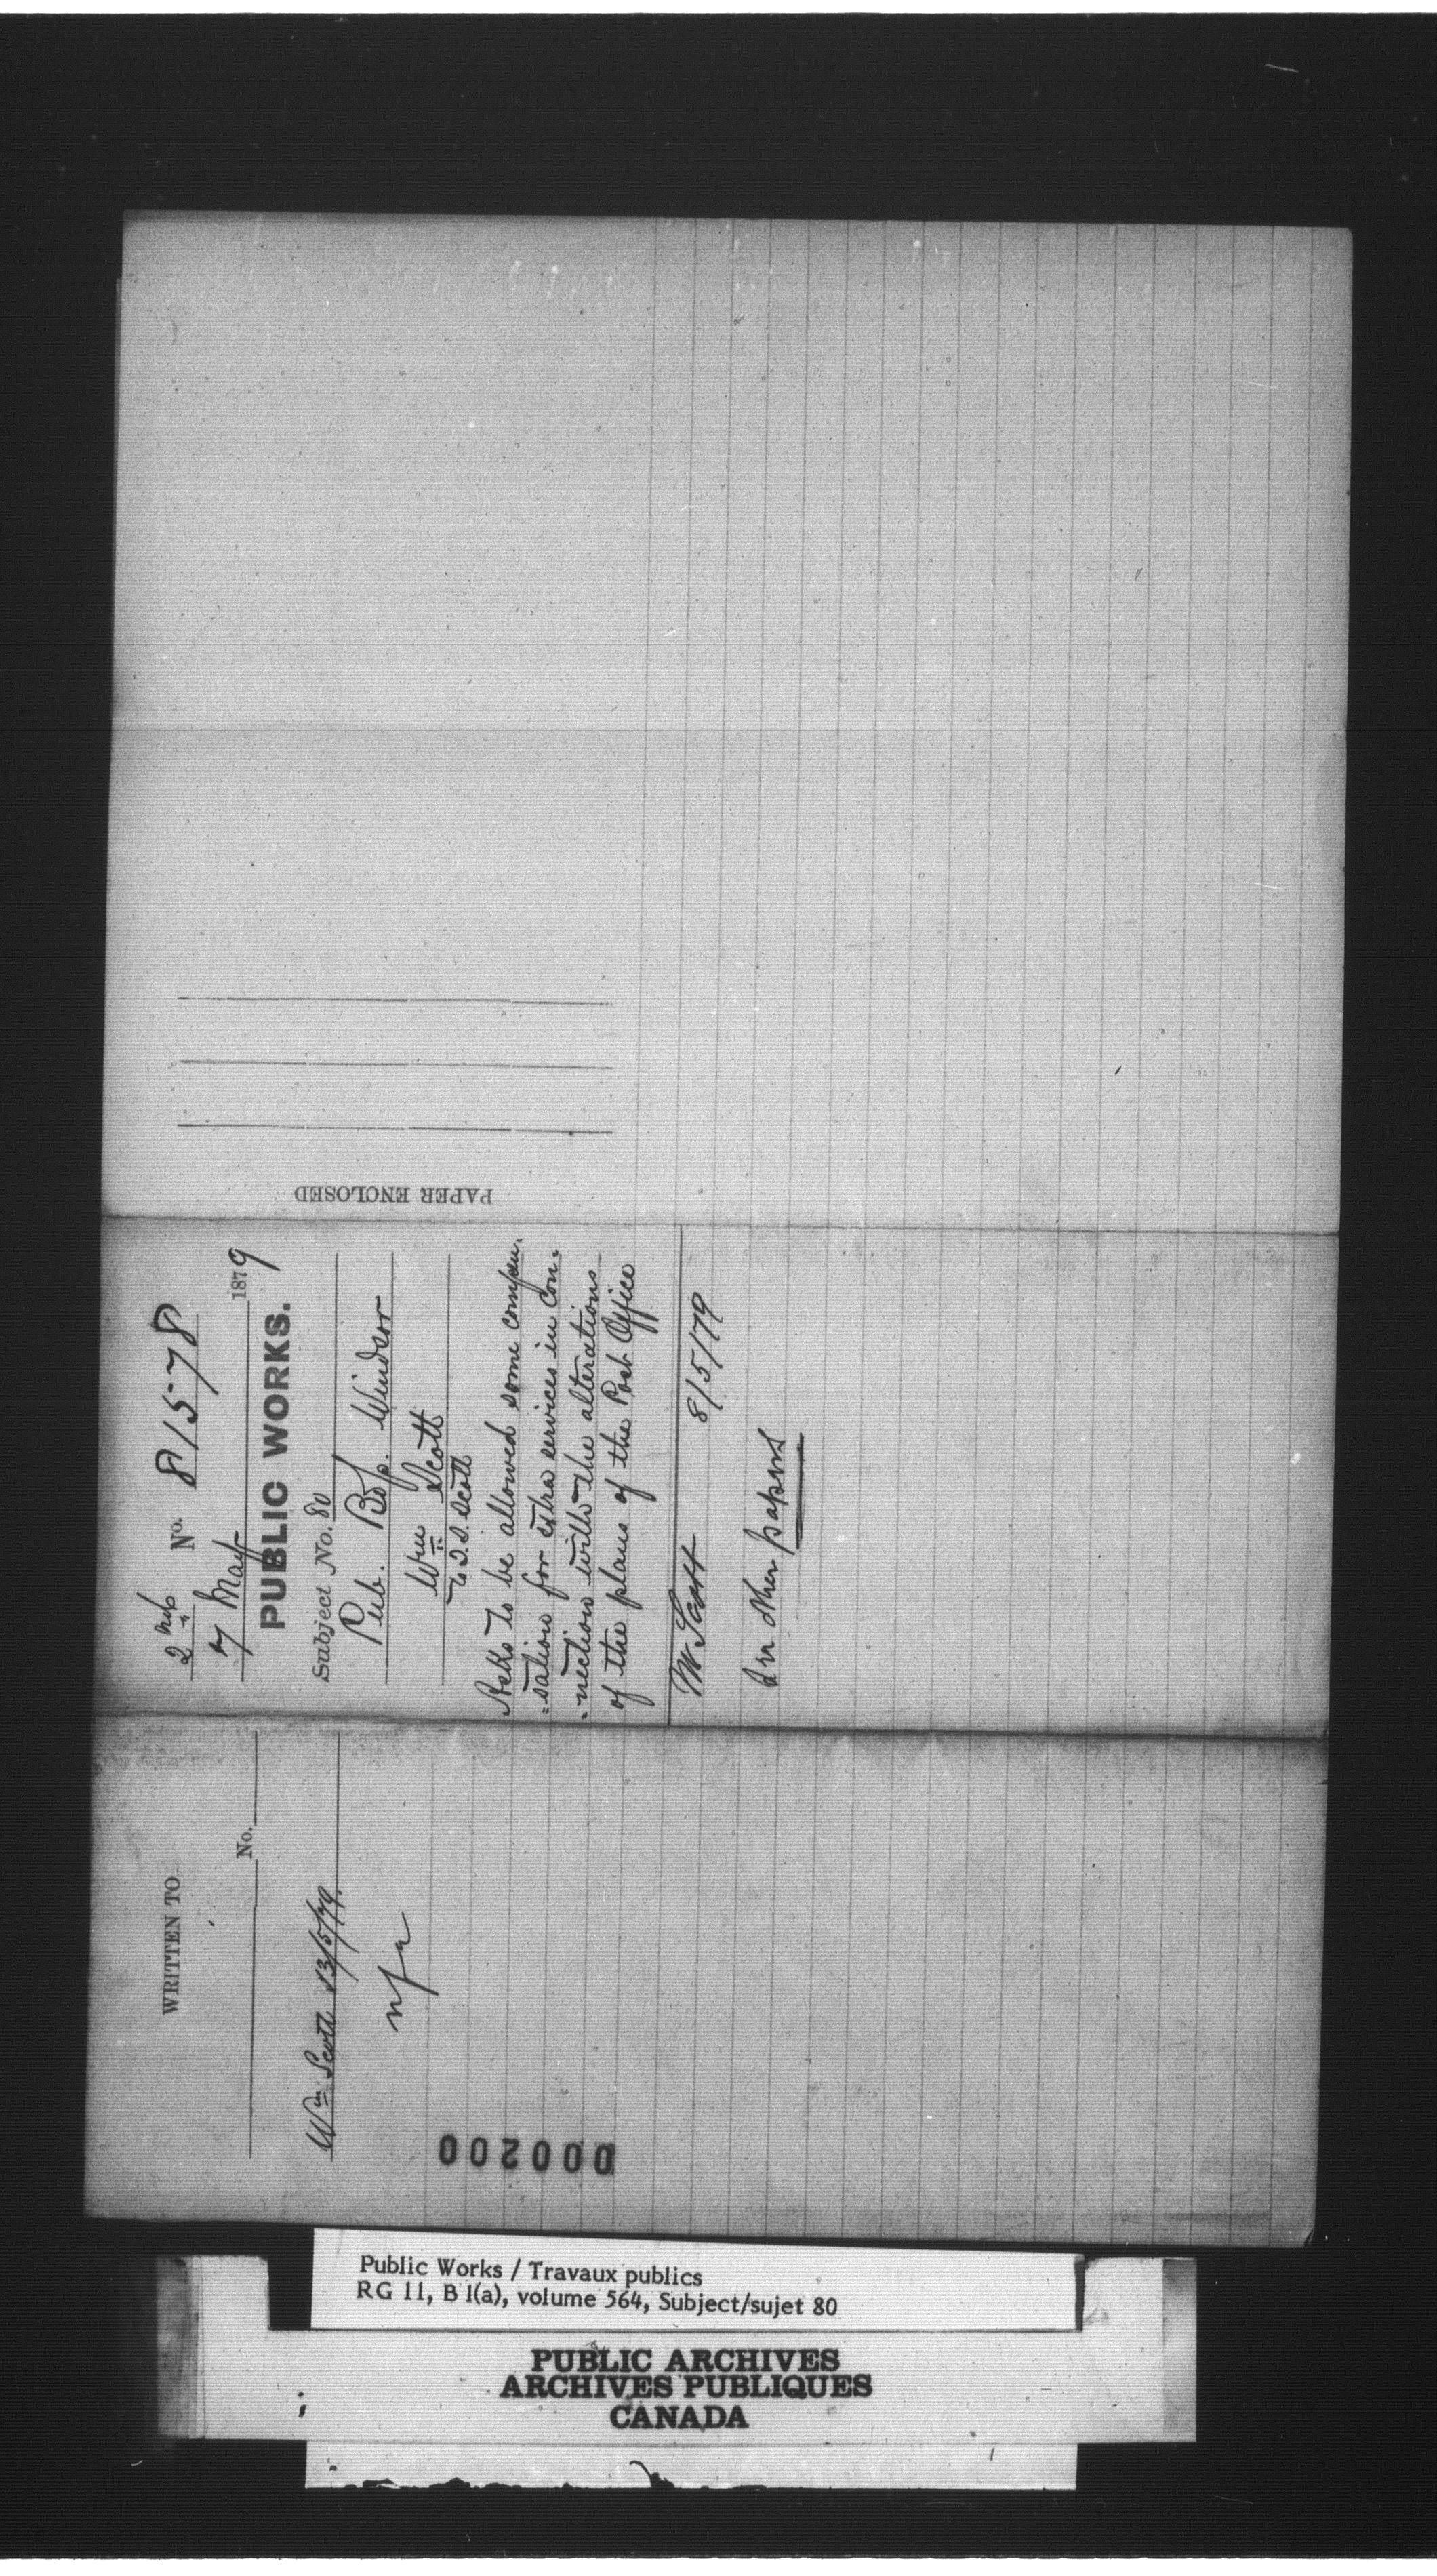 WRITTEN TO
No.
Wm Scott 13/5/79.
nfa
000200
2 No. 81578
7 May 1879
PUBLIC WORKS.
Subject No. 80
Pub. Bdgs. Windsor
Wm Scott
To T. S. Scott
Asks to be allowed some compen-
=sation for extra services in con-
=nection with the alterations
of the plans of the Post Office
W Scott 8/5/79
In other papers
PAPER ENCLOSED
Public Works / Travaux publics
RG 11, B 1(a), volume 564, Subject/sujet 80
PUBLIC ARCHIVES
ARCHIVES PUBLIQUES
CANADA